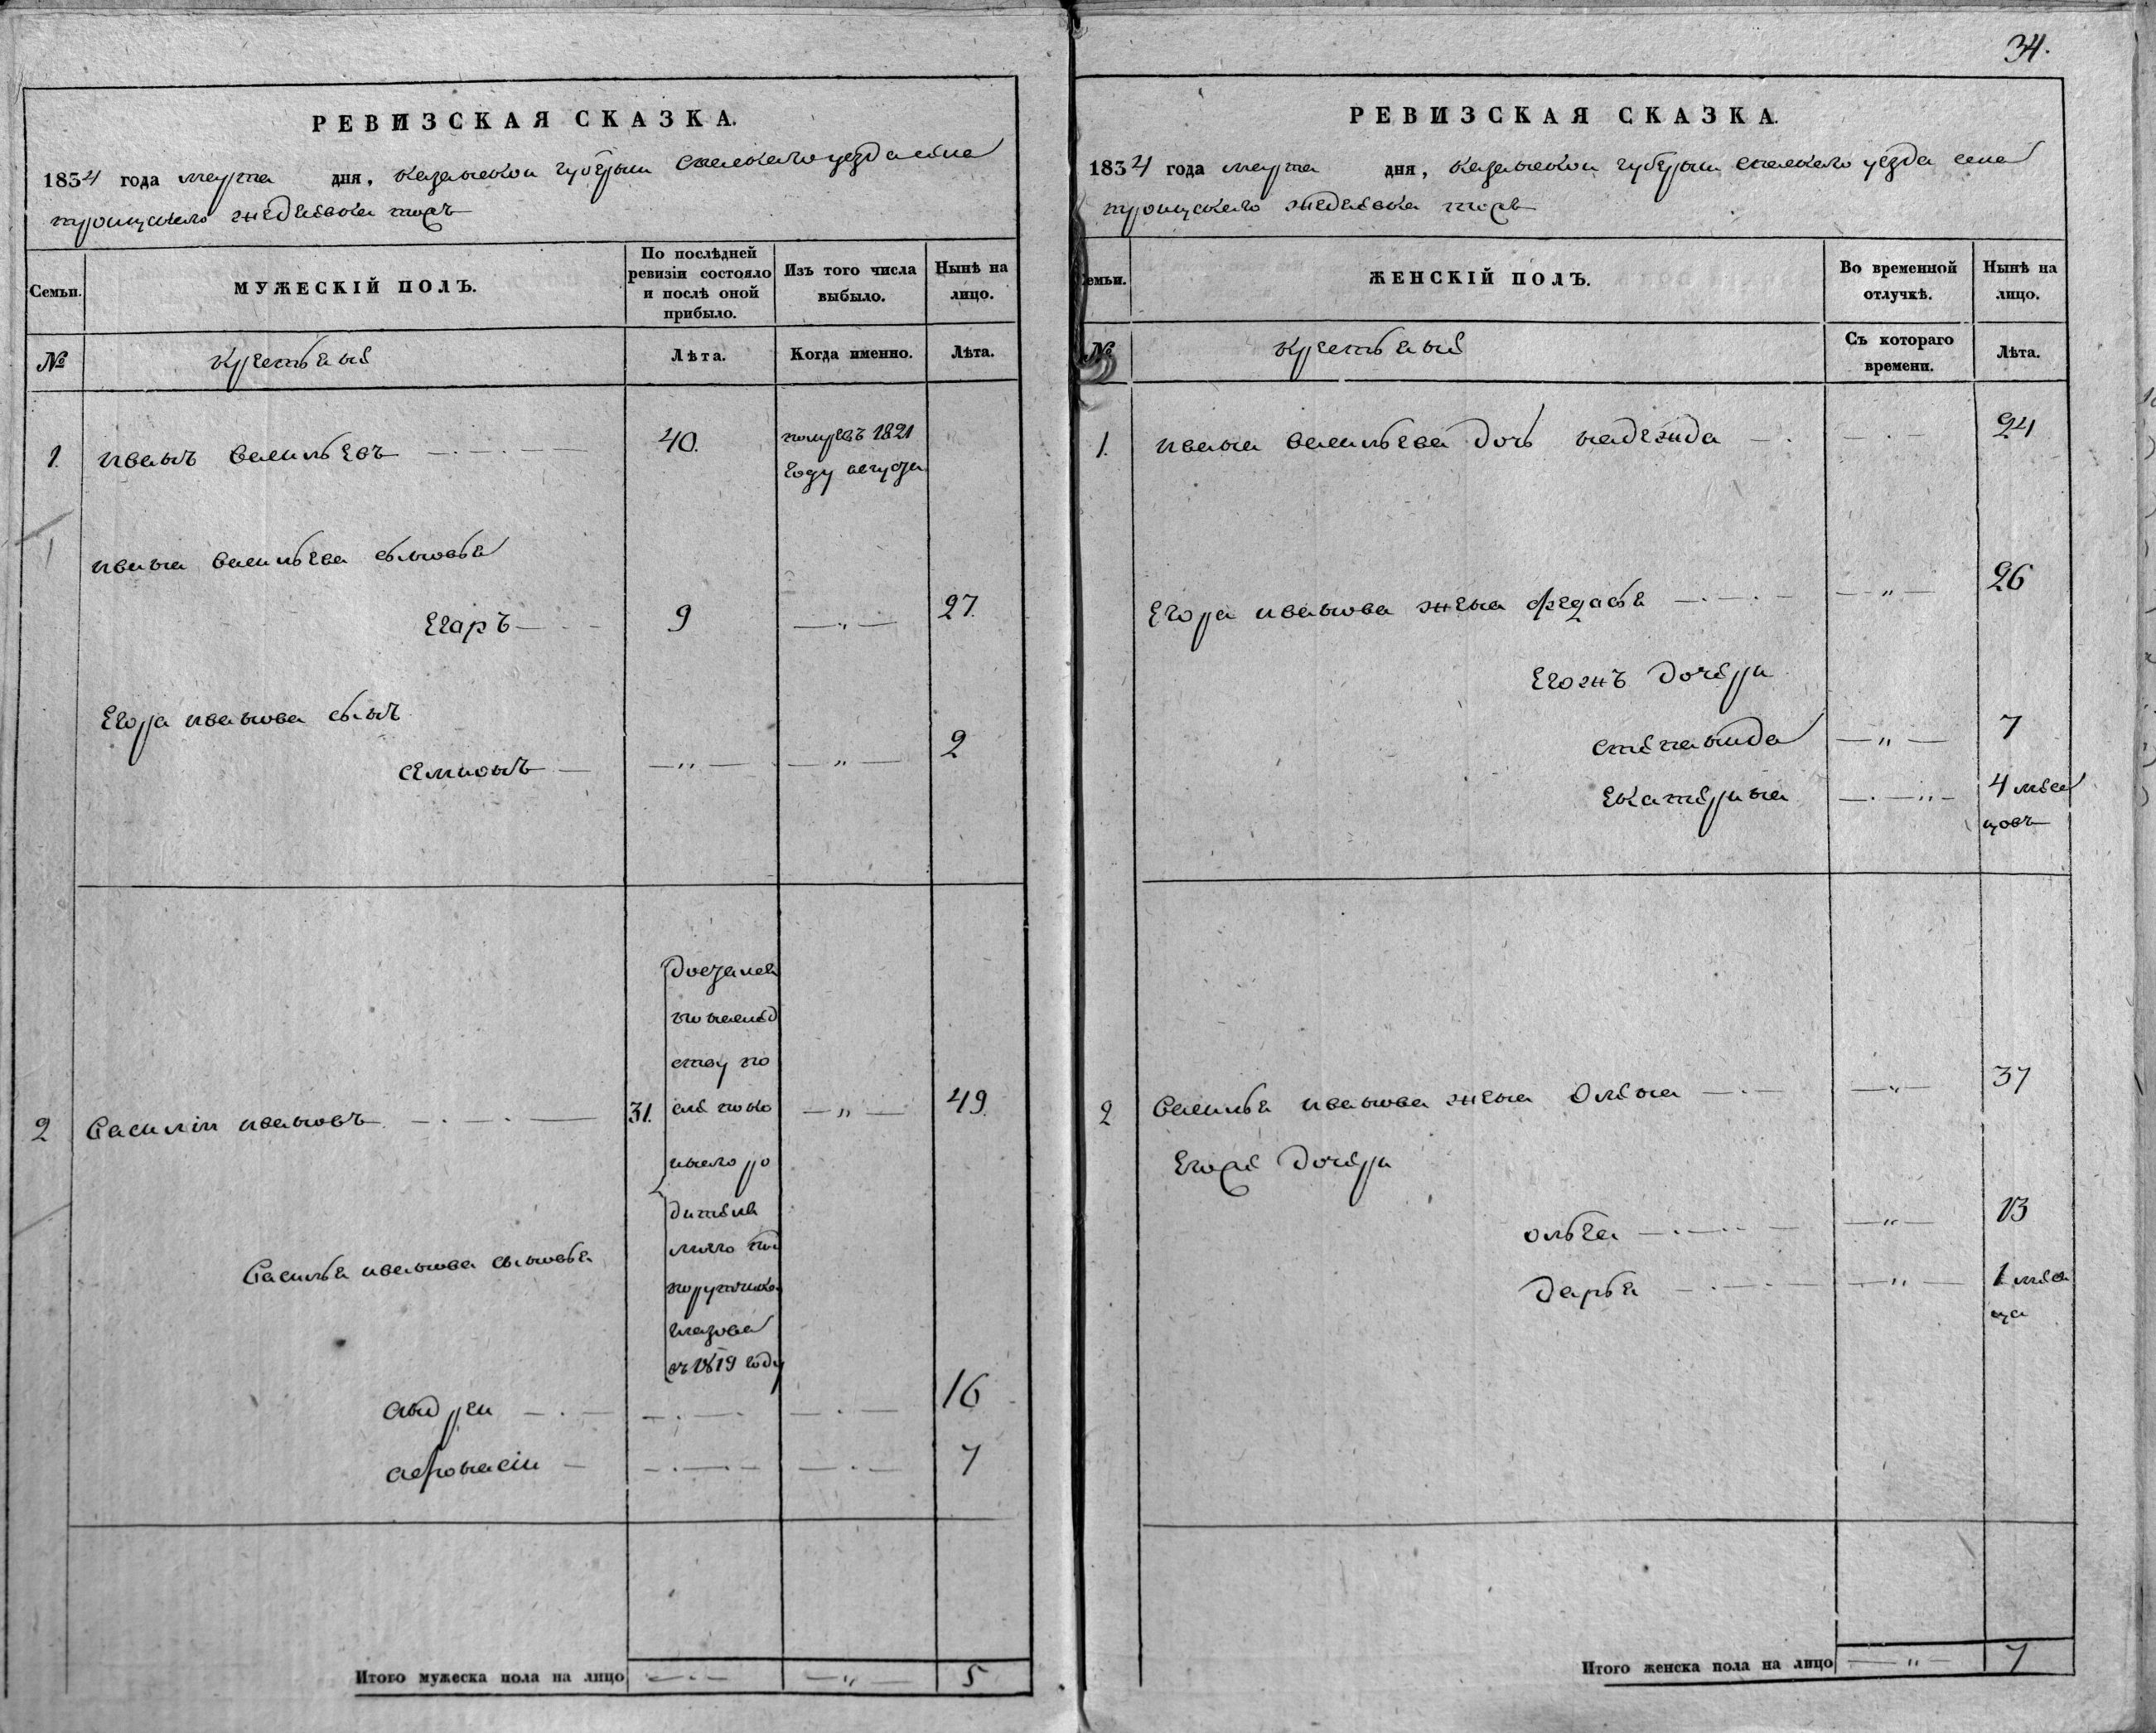 РЕВИЗСКАЯ СКАЗКА.
1834 года марта дня, казанской губерыни спаскаго уезда села
троицкаго жедяевка тожъ
Семьи.
МУЖЕСКІЙ ПОЛЪ.
По послѣдней ревизіи состояло и послѣ оной прибыло.
Изъ того числа выбыло.
Нынѣ на лицо.
№
крестьяне
Лѣта.
Когда именно.
Лѣта.
1. иванъ васильевъ 40. помревъ 1821
году августа
ивана васильева сыновья
Егаръ 9 27.
Егора иванова сынъ
семионъ 2
2 василіи ивановъ 31. 49.
достался
по наслѣд
ству по
слѣ поко
инаго ро
дителя
моего
въ 1819 году
василья иванова сыновья
андреи 16
афонасіи 7
Итого мужеска пола на лицо 5
34.
РЕВИЗСКАЯ СКАЗКА.
1834 года марта дня, казанской губерыни спаскаго уезда села
троицкаго жедяевка тожъ
Семьи.
ЖЕНСКІЙ ПОЛЪ.
Во временной отлучкѣ.
Нынѣ на лицо.
№
крестьяне
Съ котораго времени.
Лѣта.
1. ивана васильева дочь надежда 24
Егора иванова жена федосья 26
Егожъ дочери
степанида 7
Екатерина 4 меся
цовъ
2 василья иванова жена Олена 37
Егоже дочери
ольга 13
дарья 1 меся
ца
Итого женска пола на лицо 7